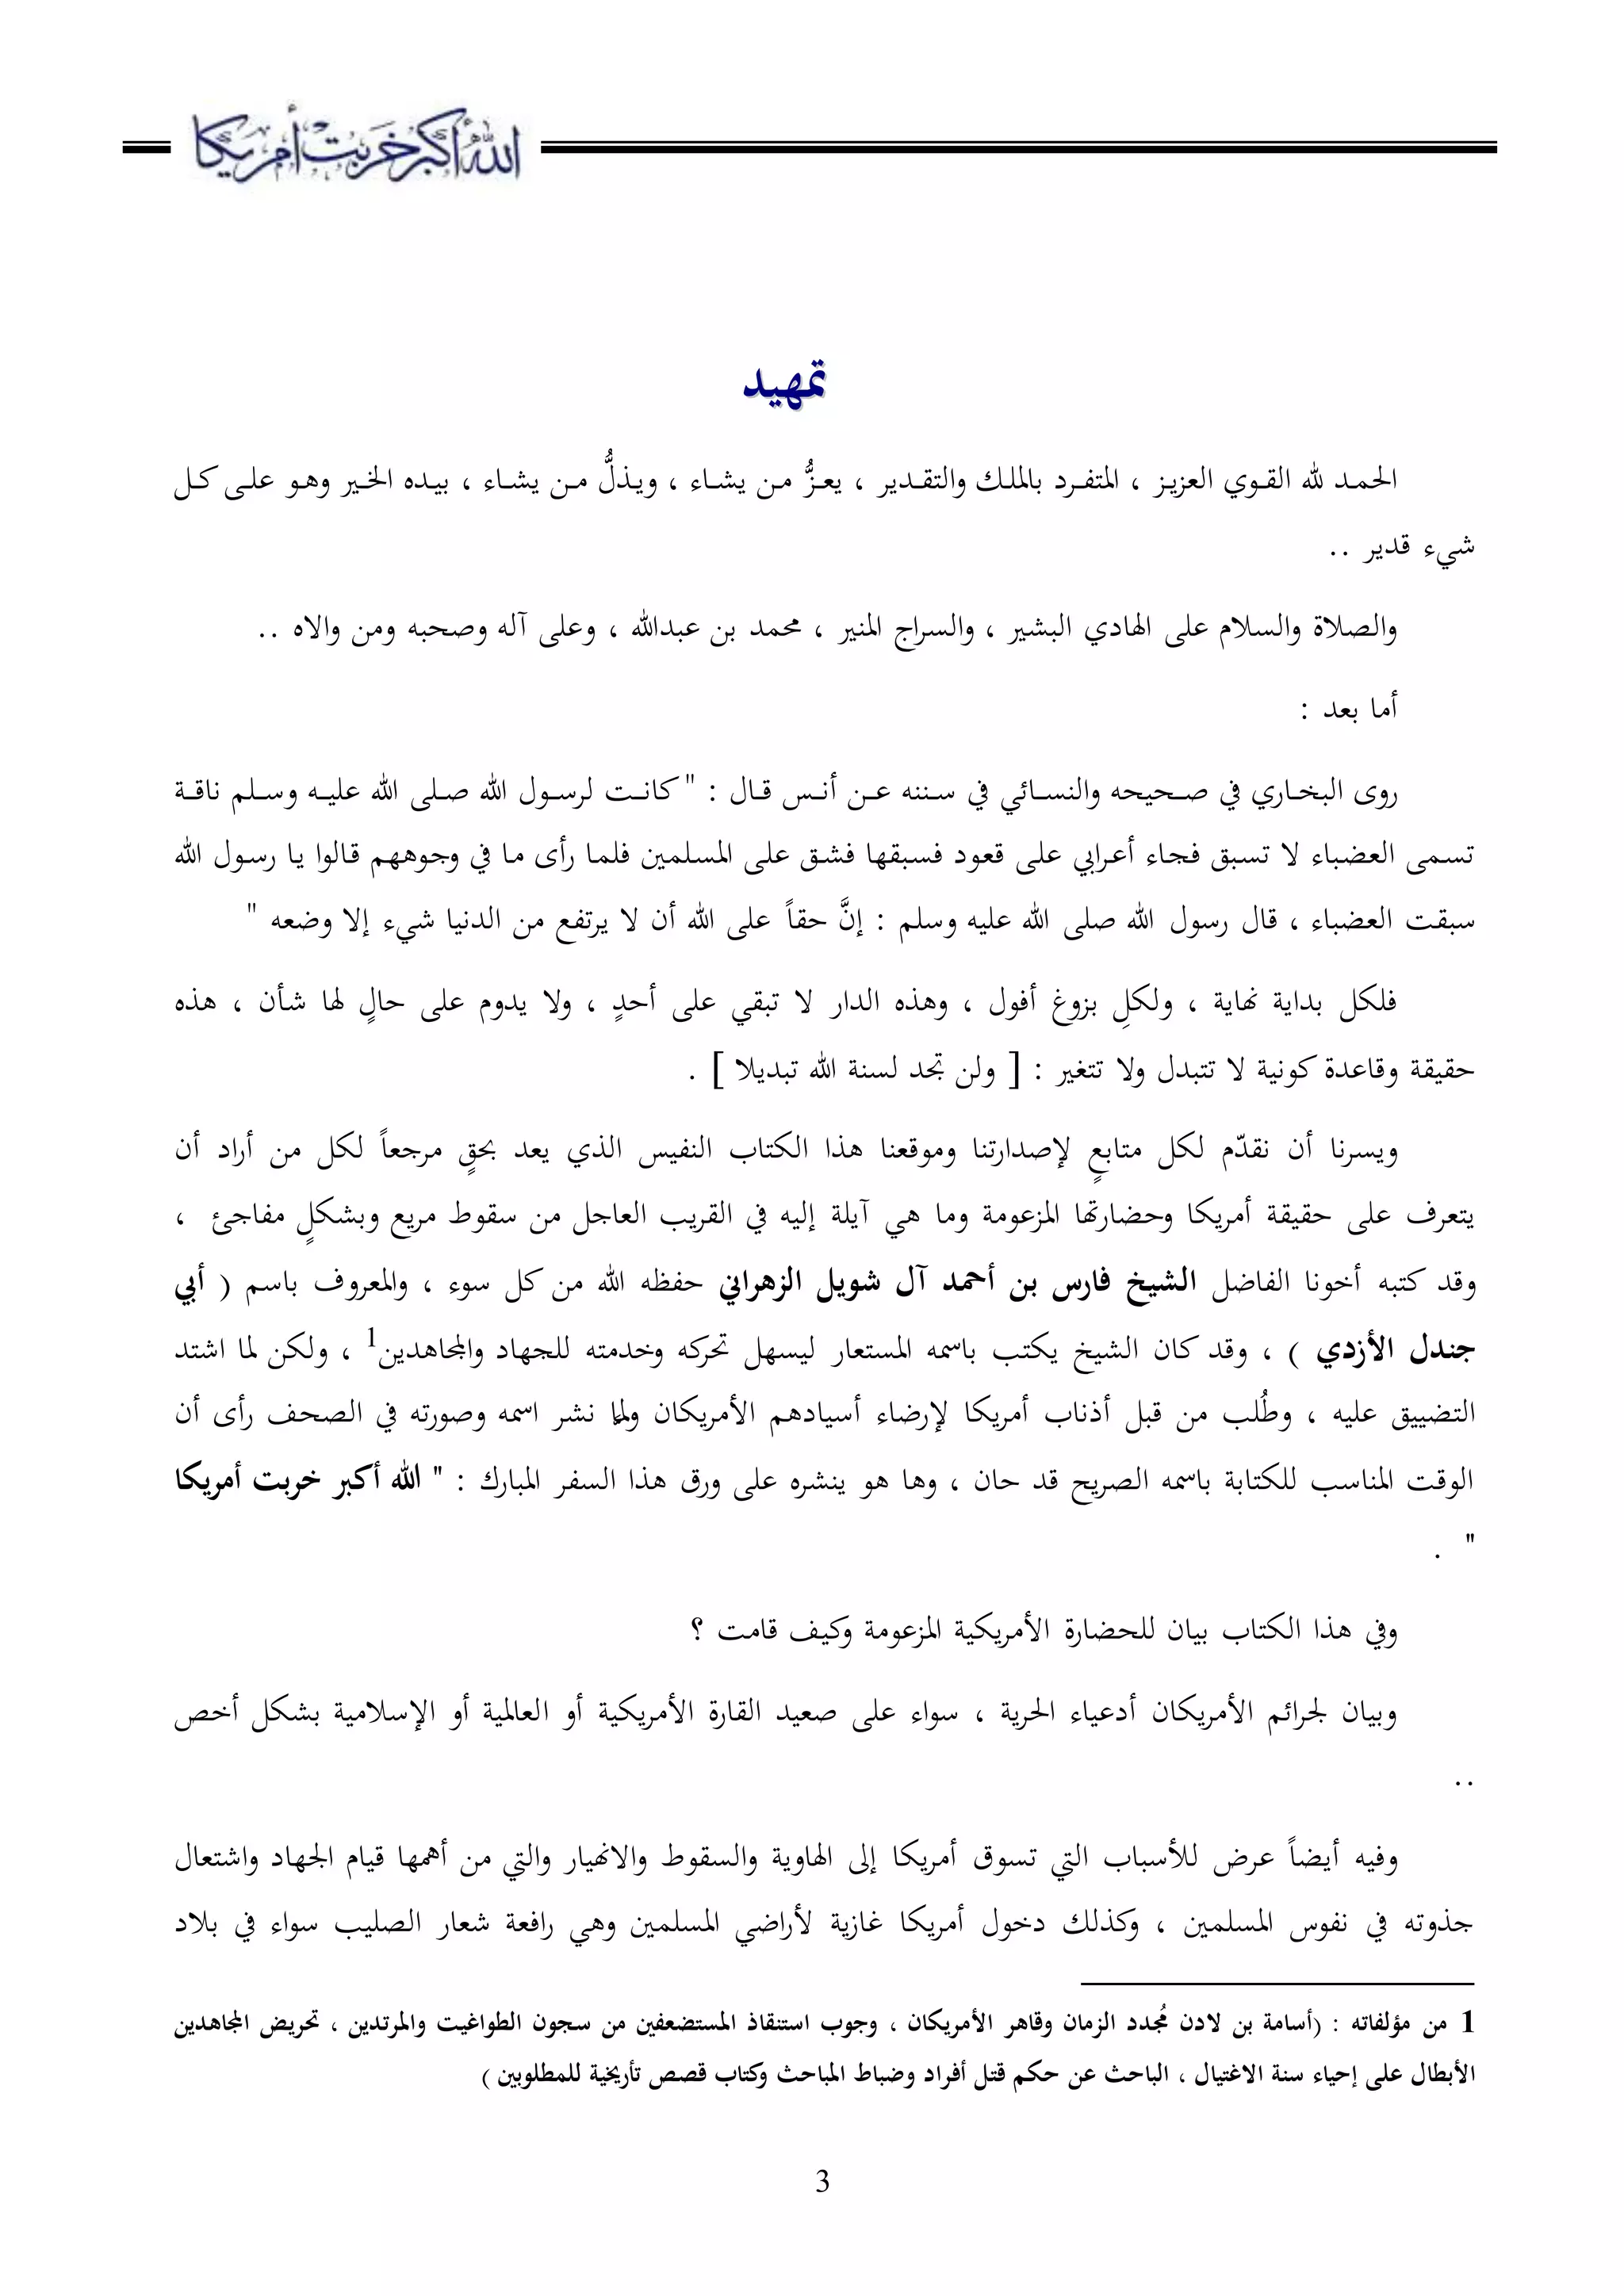 الله أكبر خربت أمريكا
تمهيد
الحمد لله القوي العزيز ، المتفرد بالملك والتقدير ، يعزُّ من يشاء ، ويذلُّ من يشاء ، بيده الخير وهو على كل
شيء قدير ..
والصلاة والسلام على الهادي البشير ، والسراج المنير ، محمد بن عبدالله ، وعلى آله وصحبه ومن والاه ..
أما بعد :
روى البخاري في صحيحه والنسائي في سننه عن أنس قال : " كانت لرسول الله صلى الله عليه وسلم ناقة
تسمى العضباء لا تسبق فجاء أعرابي على قعود فسبقها فشق على المسلمين فلما رأى ما في وجوههم قالوا يا رسول الله
سبقت العضباء ، قال رسول الله صلى الله عليه وسلم : إنَّ حقاً على الله أن لا يرتفع من الدنيا شيء إلا وضعه "
فلكل بداية نهاية ، ولكلِ بزوغ أفول ، وهذه الدار لا تبقي على أحدٍ ، ولا يدوم على حالٍ لها شأن ، هذه
حقيقة وقاعدة كونية لا تتبدل ولا تتغير : [ ولن تجد لسنة الله تبديلا ] .
ويسرنا أن نقدّم لكل متابعٍ لإصداراتنا وموقعنا هذا الكتاب النفيس الذي يعد بحقٍ مرجعاً لكل من أراد أن
يتعرف على حقيقة أمريكا وحضارتها المزعومة وما هي آيلة إليه في القريب العاجل من سقوط مريع وبشكلٍ مفاجئ ،
وقد كتبه أخونا الفاضل الشيخ فارس بن أحمد آل شويل الزهراني حفظه الله من كل سوء ، والمعروف باسم ( أبي
جندل الأزدي ) ، وقد كان الشيخ يكتب باسمه المستعار ليسهل تحركه وخدمته للجهاد والمجاهدين1 ، ولكن لما اشتد
التضييق عليه ، وطُلب من قبل أذناب أمريكا لإرضاء أسيادهم الأمريكان ولمّا نشر اسمه وصورته في الصحف رأى أن
الوقت المناسب للكتابة باسمه الصريح قد حان ، وها هو ينشره على ورق هذا السفر المبارك : " الله أكبر خربت أمريكا
" .
وفي هذا الكتاب بيان للحضارة الأمريكية المزعومة وكيف قامت ؟
وبيان لجرائم الأمريكان أدعياء الحرية ، سواء على صعيد القارة الأمريكية أو العالمية أو الإسلامية بشكل أخص
..
وفيه أيضاً عرض للأسباب التي تسوق أمريكا إلى الهاوية والسقوط والانهيار والتي من أهمها قيام الجهاد واشتعال
جذوته في نفوس المسلمين ، وكذلك دخول أمريكا غازية لأراضي المسلمين وهي رافعة شعار الصليب سواء في بلاد
1 من مؤلفاته : (أسامة بن لادن مُجدد الزمان وقاهر الأمريكان ، وجوب استنقاذ المستضعفين من سجون الطواغيت والمرتدين ، تحريض المجاهدين
الأبطال على إحياء سنة الاغتيال ، الباحث عن حكم قتل أفراد وضباط المباحث وكتاب قصص تأريخية للمطلوبين )
3